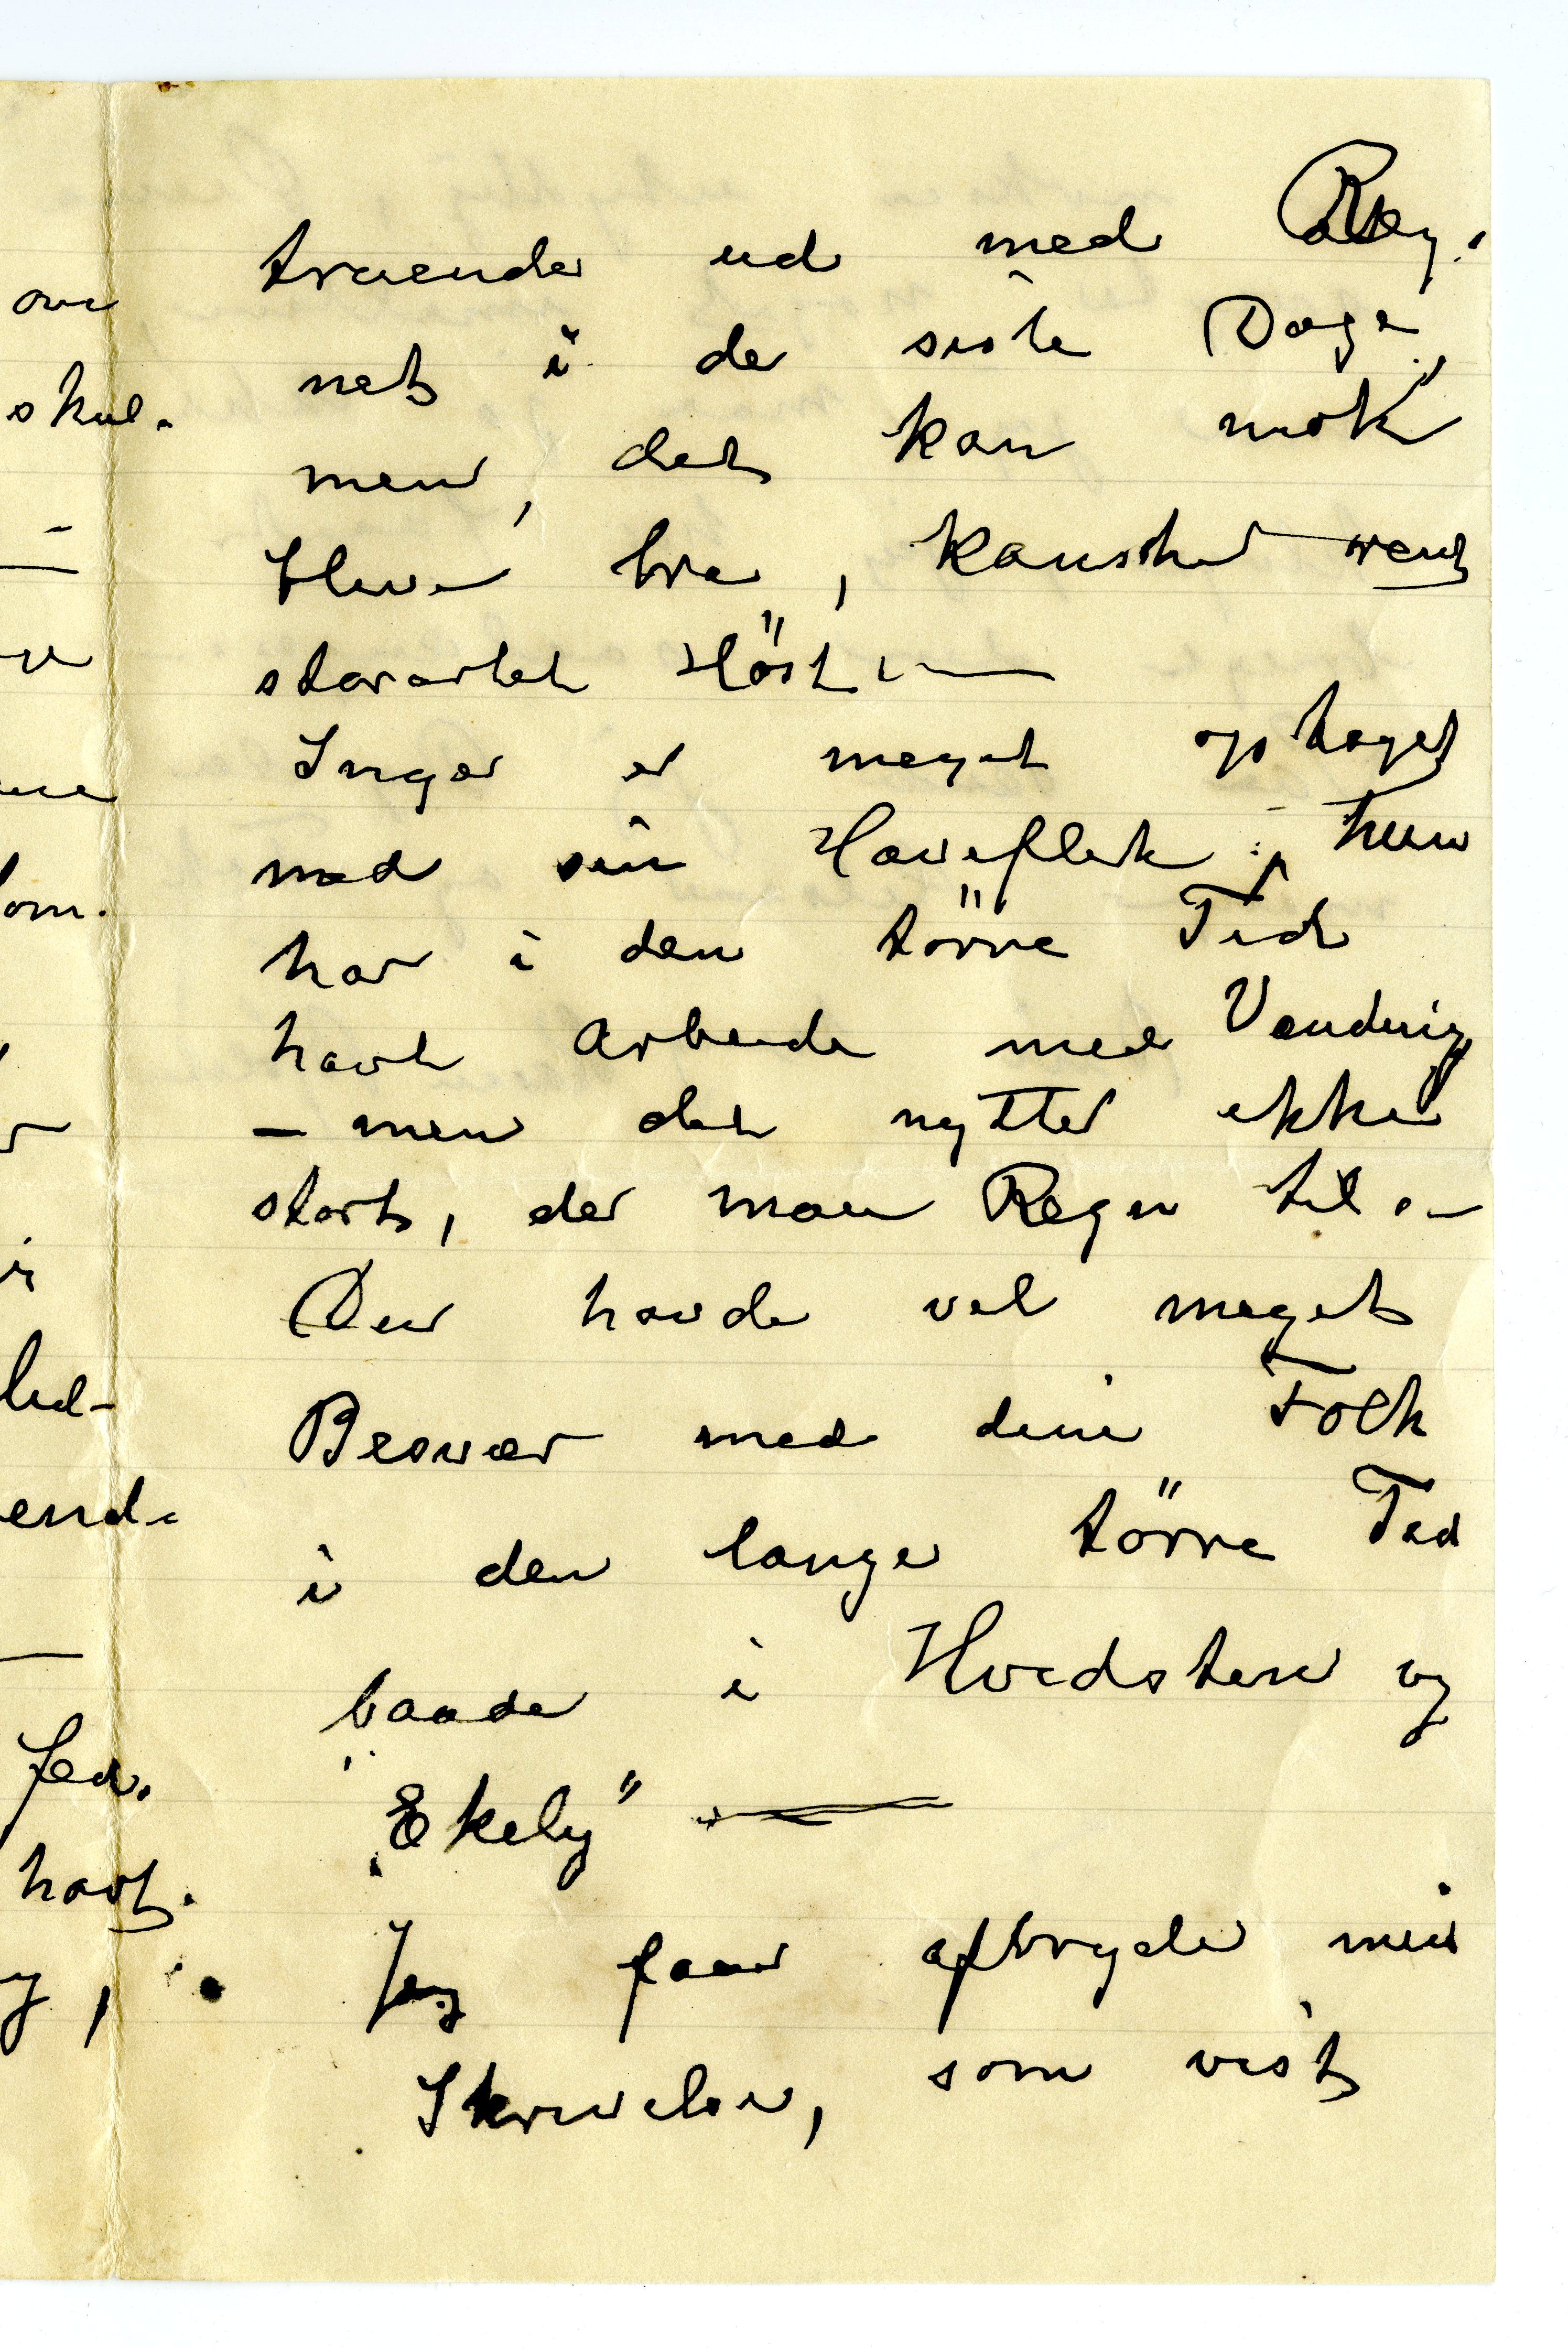 truende ud med Reg-
net i de siste Dage,
men, det kan nok
blive bra, kanske rent
storartet Höst. —
Inger er meget optaget
med sin Haveflek; hun
har i den törre Tid
havt Arbeide med Vanding
– men det nytter ikke
stort, der maa Regn til. –
Du havde vel meget
Besvær med dine Folk
i den lange törre Tid
baade i Hvidsten og
„Ekely" —
Jeg faar afbryde min
Skrivelse, som vist
over
skul-
om.
lid-
end-
fed.
havt.